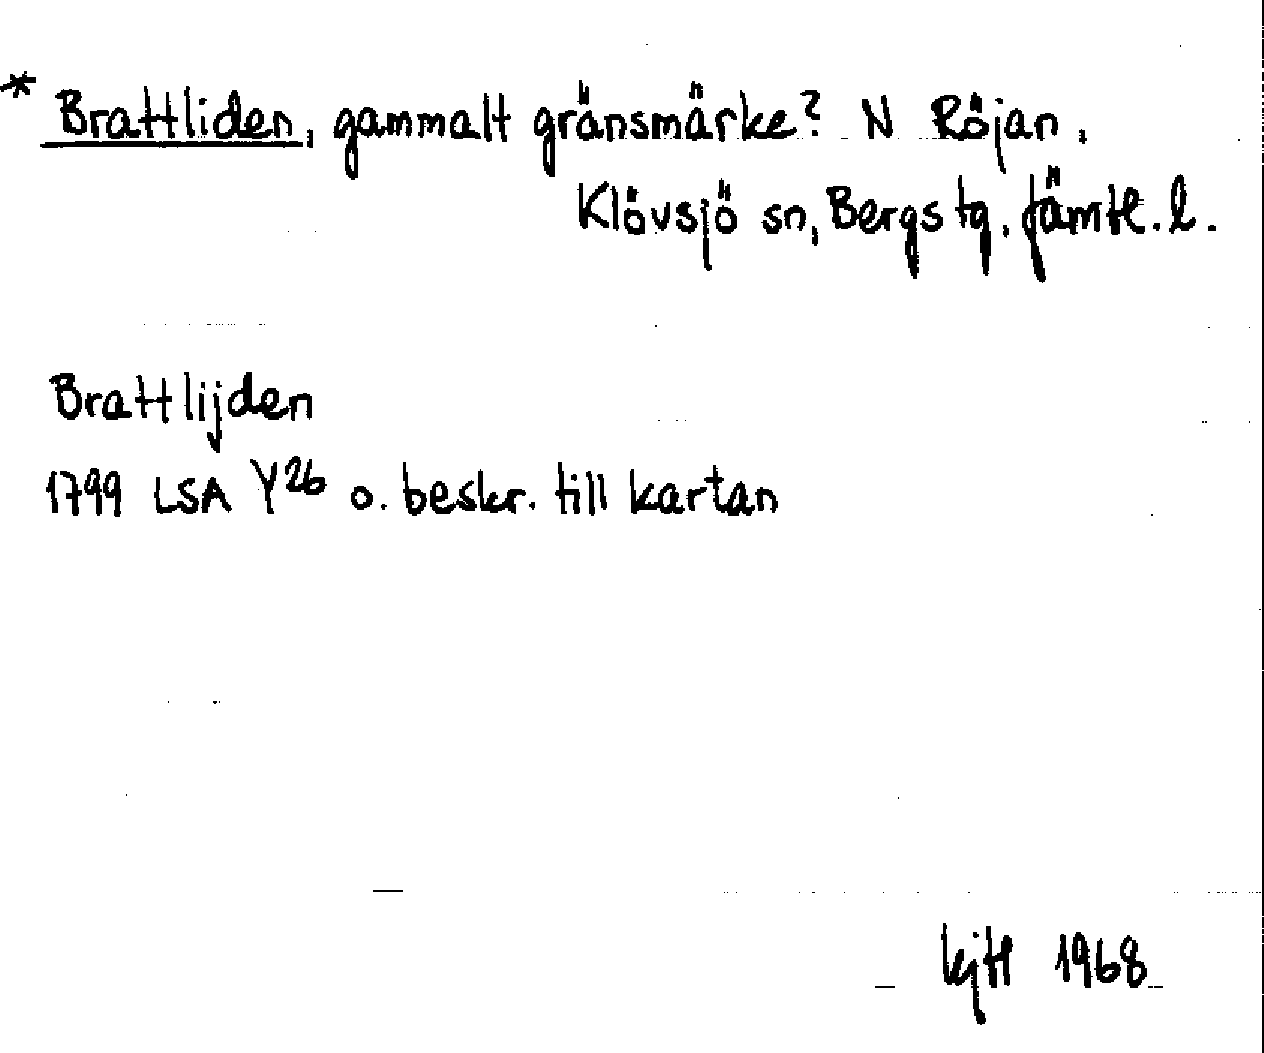 * Brattliden, gammalt gränsmärke? N Röjan,
Klövsjö sn, Bergs tg, Jämtl. l.
Brattlijden
1799 LSA Y26 o. beskr. till kartan
1968